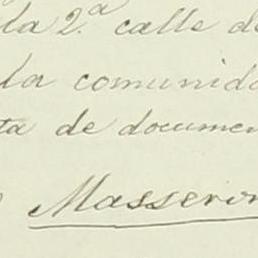 la 2.ª calle de
la comunida
ta de documen
Masseron